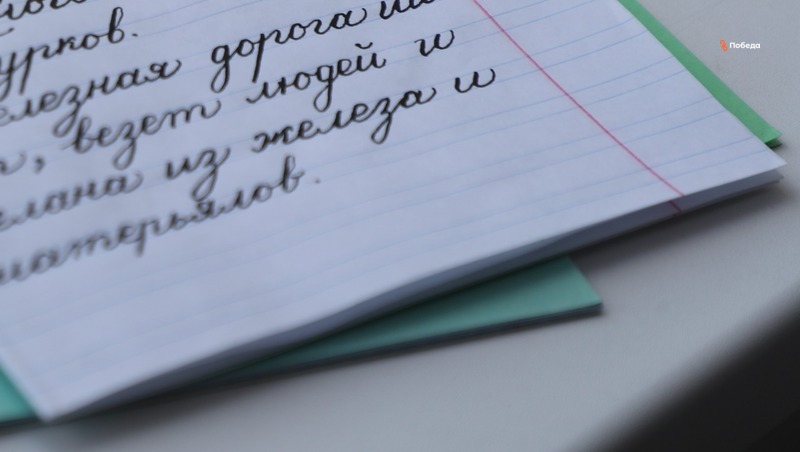 урков.
елезная дорога
, везет людей и
елана из железа и
матерьялов.
Победа